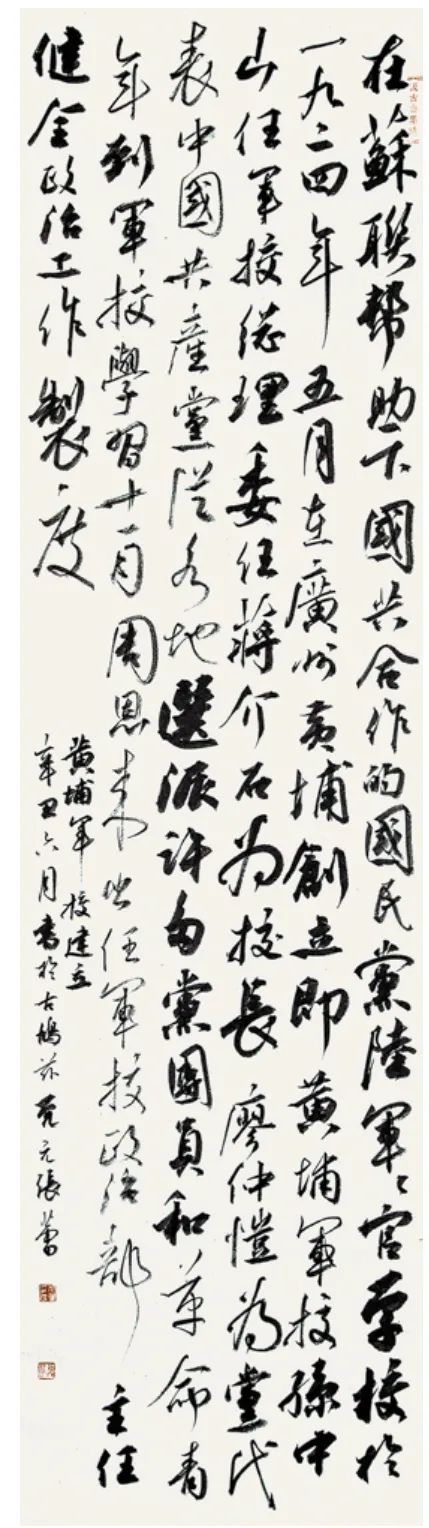 在蘇聯帮助下國共合作的國民黨陸軍〻官学校於
一九二四年五月在廣州黄埔創立即黄埔軍校孫中
山任軍校總理委任蔣介石为校長廖仲愷為黨代
表中國共產黨從各地選派許多黨團員和革命青
年到軍校學習十一月周恩来出任軍校政治部主任
健全政治工作製度
黄埔軍校建立
辛丑六月書於古鳩茲元張